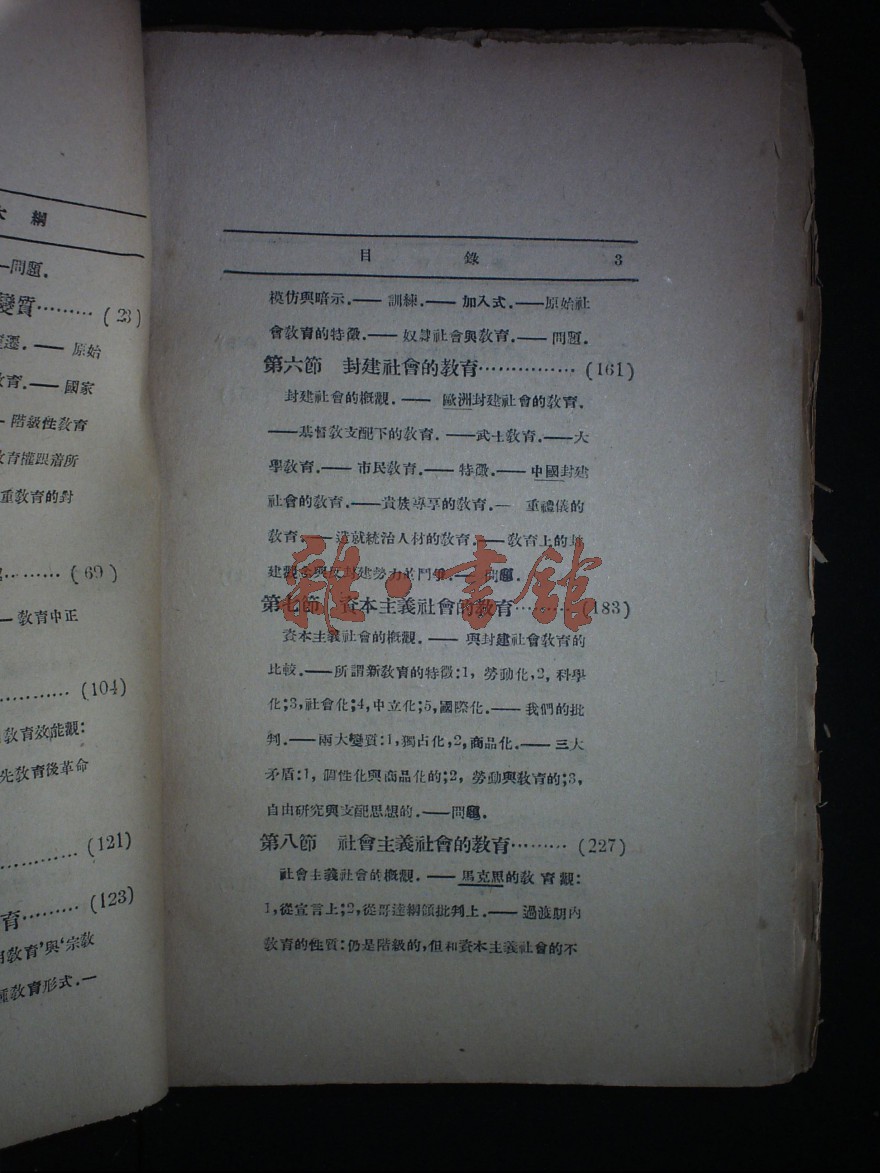 大綱
—問題．
變質……… (23)
遷．—— 原始
教育．—— 國家
- 階級性教育
教育權跟着所
重教育的對
……… (69)
— 教育中正
……… (104)
教育效能觀：
先教育後革命
……… (121)
育……… (123)
用教育'與'宗教
種教育形式．—
目錄 3
模仿與暗示．—— 訓練．—— 加入式．——原始社
會教育的特徵．—— 奴隸社會與教育．—— 問題．
第六節 封建社會的教育…………… (161)
封建社會的概觀．—— 歐洲封建社會的教育．
——基督教支配下的教育．——武士教育．——大
學教育．—— 市民教育．—— 特徵．—— 中國封建
社會的教育．——貴族專享的教育．— 重禮儀的
教育．——造就統治人材的教育．——教育上的封
建觀念與反封建勢力的鬥爭．— 問題．
第七節 資本主義社會的教育……… (183)
資本主義社會的概觀．—— 與封建社會教育的
比較．——所謂新教育的特徵：1，勞動化，2，科學
化；3，社會化；4，中立化；5，國際化．—— 我們的批
判．——兩大變質：1，獨占化，2，商品化．—— 三大
矛盾：1，個性化與商品化的；2，勞動與教育的；3，
自由研究與支配思想的．——問題．
第八節 社會主義社會的教育……… (227)
社會主義社會的概觀．—— 馬克思的教育觀：
1，從宣言上；2，從哥達綱領批判上．—— 過渡期內
教育的性質：仍是階級的，但和資本主義社會的不
雜·書館